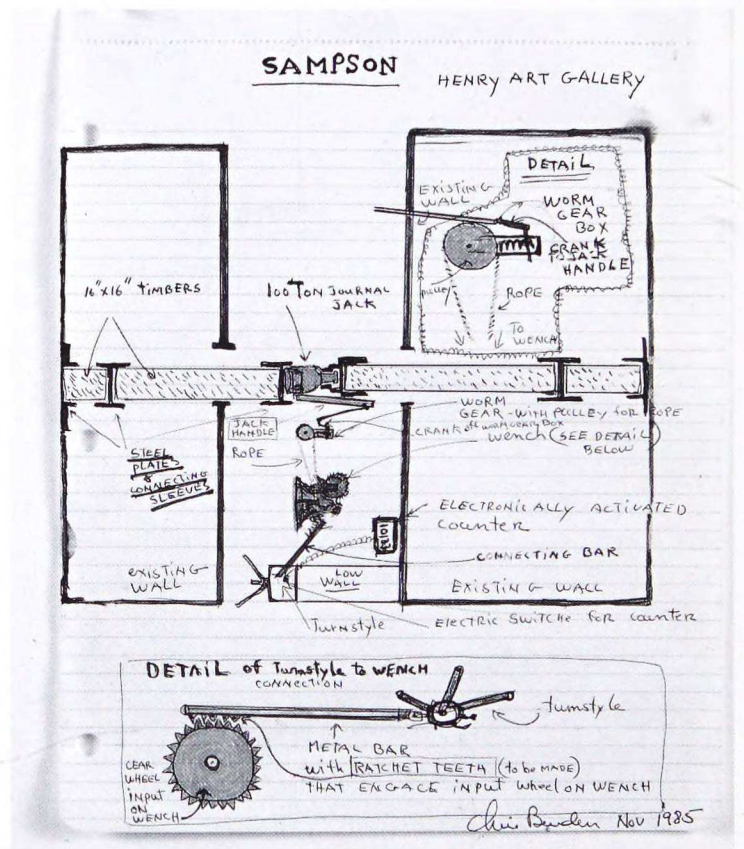 SAMPSON
HENRY ART GALLERY
DETAIL
EXISTING
WALL
WORM
GEAR
BOX
CRANK
JACK
HANDLE
pulley
ROPE
TO
WENCH
16"x16" TIMBERS
100 TON JOURNAL
JACK
JACK
HANDLE
ROPE
WORM
GEAR-WITH PULLEY FOR ROPE
CRANK off WORM GEAR BOX
WENCH (SEE DETAIL)
BELOW
STEEL
PLATES
&
CONNECTING
SLEEVES
ELECTRONICALLY ACTIVATED
COUNTER
CONNECTING BAR
existING
WALL
LOW
WALL
EXISTING WALL
Turnstyle
ELECTRIC SWITCHE FOR COUNTER
DETAIL of Turnstyle to WENCH
CONNECTION
turnstyle
METAL BAR
with RATCHET TEETH (to be MADE)
THAT ENGAGE INPUT wheel ON WENCH
GEAR
WHEEL
INPUT
ON
WENCH
Chris Burden Nov 1985